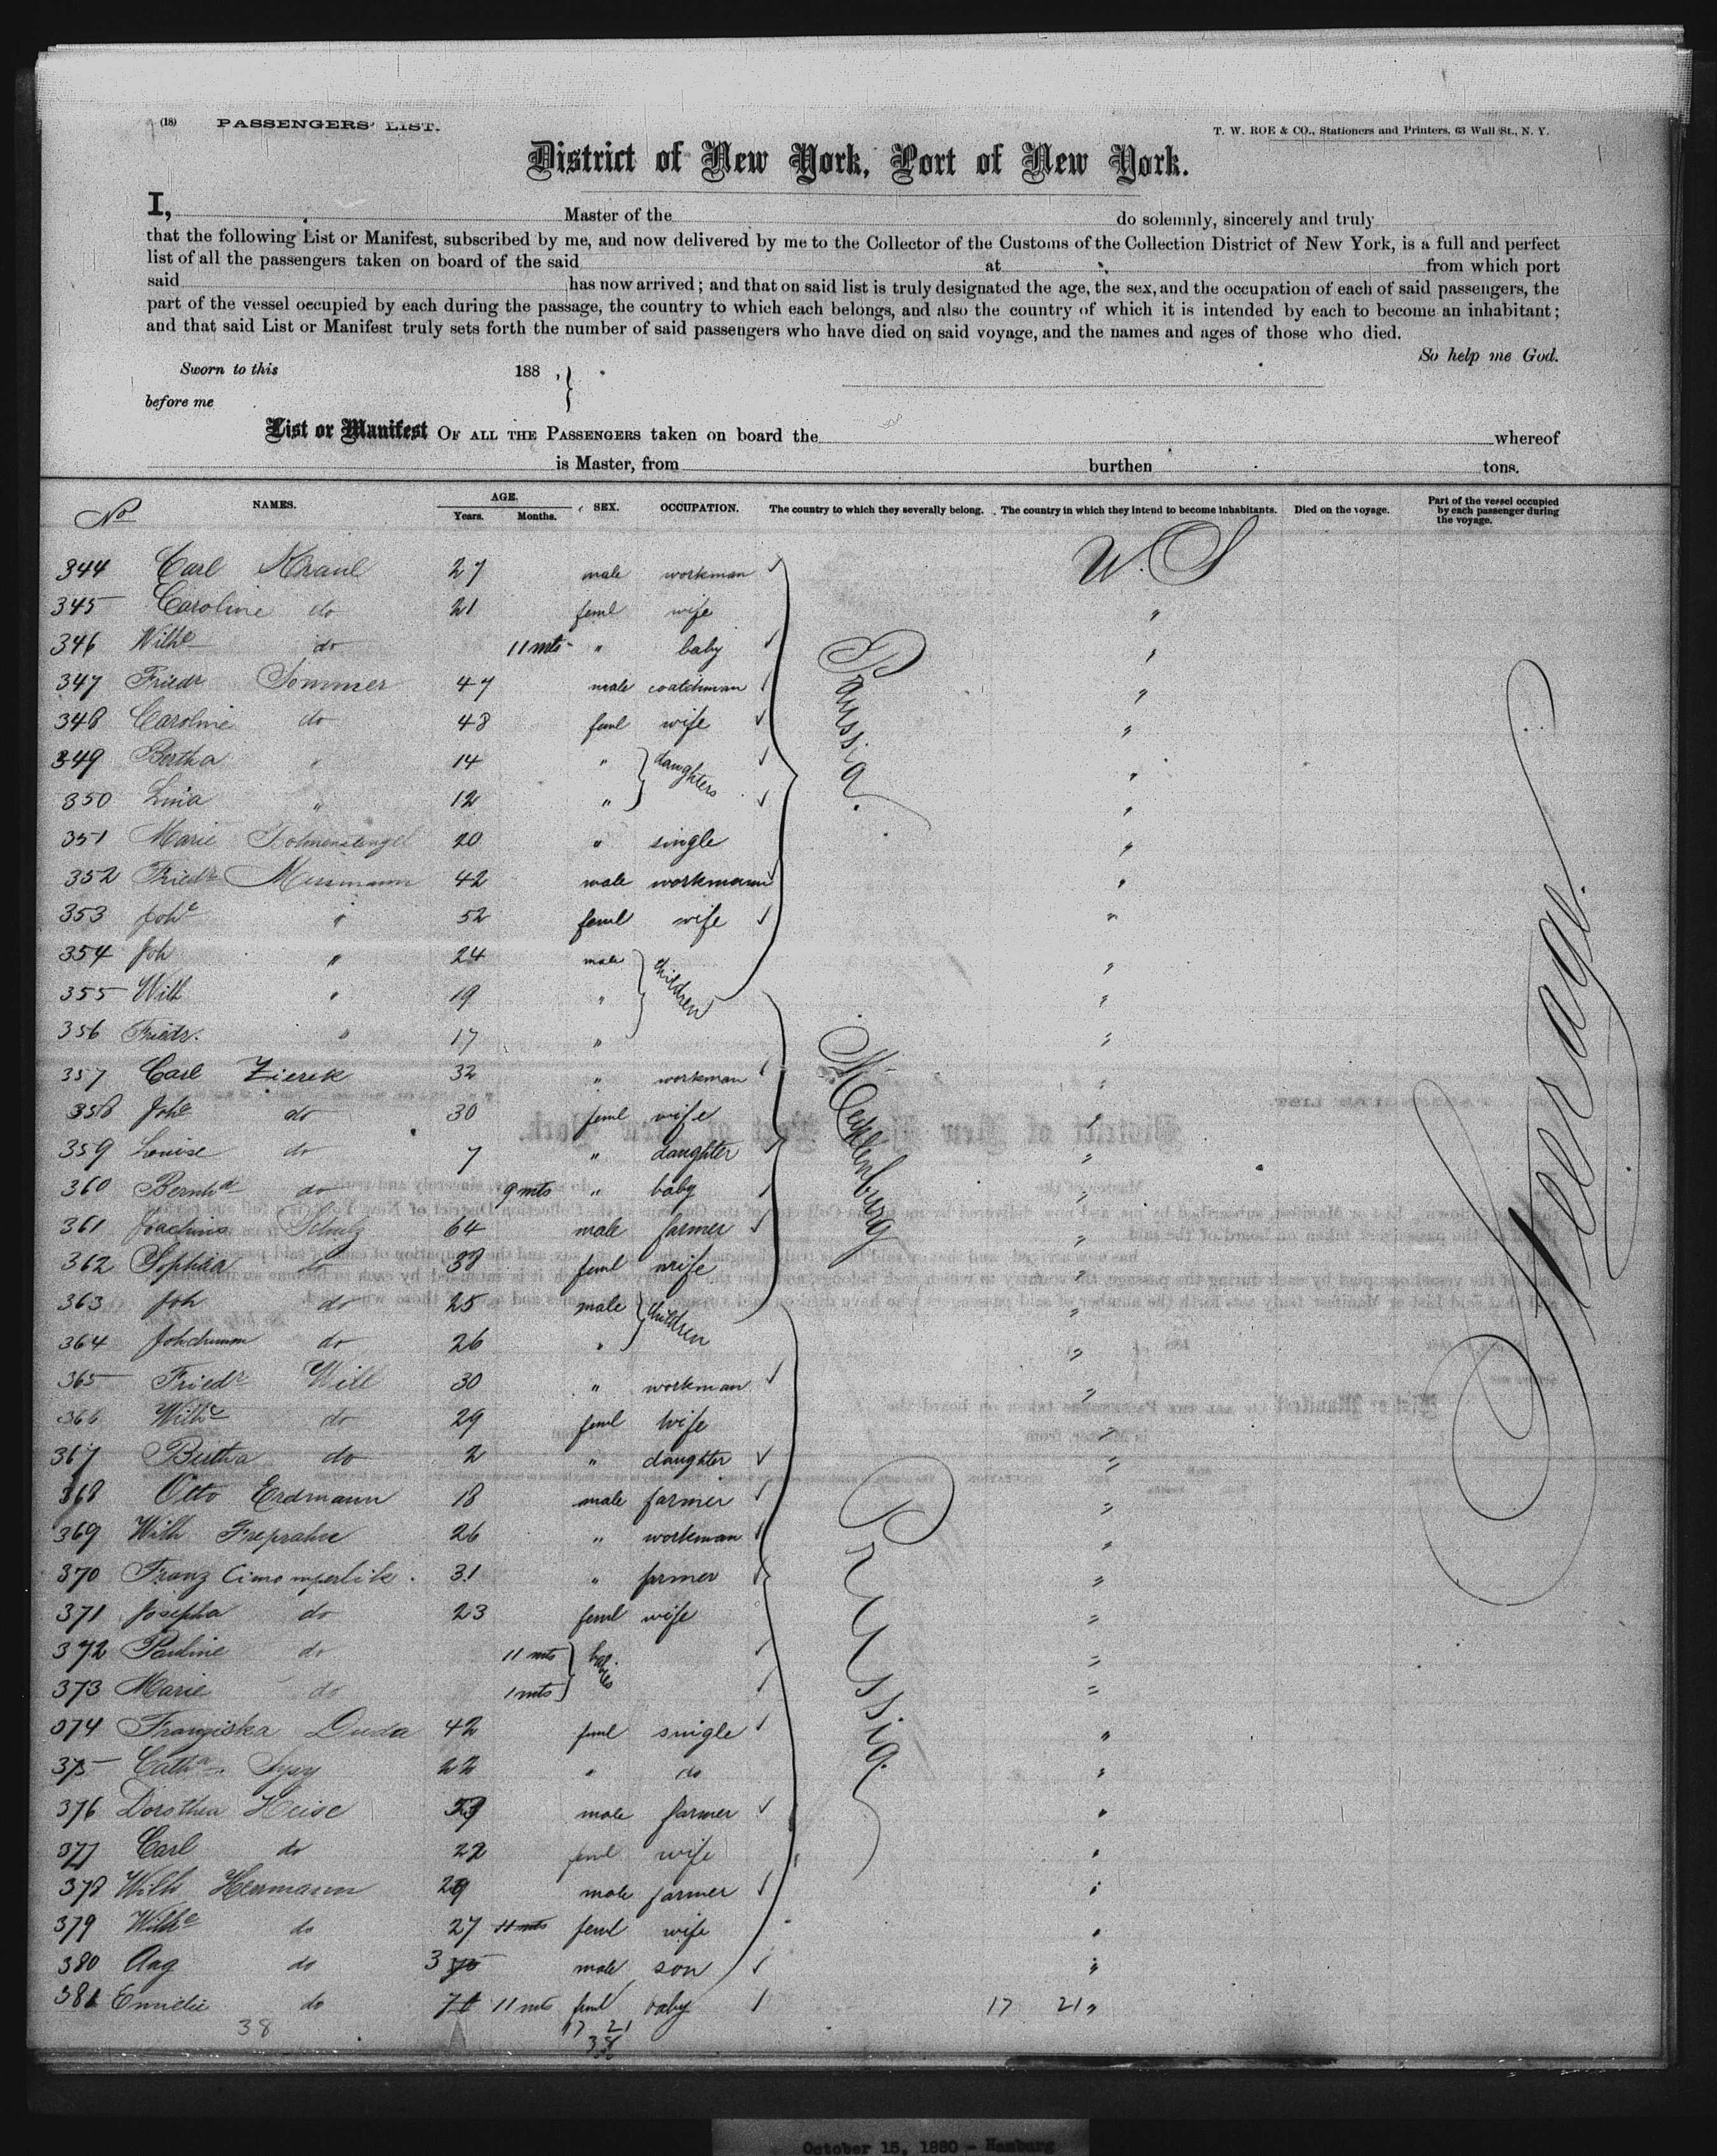 (18) PASSENGERS' LIST.
T. W. ROE & CO., Stationers and Printers, 63 Wall St., N. Y.
District of New York, Port of New York.
I, Master of the do solemnly, sincerely and truly
that the following List or Manifest, subscribed by me, and now delivered by me to the Collector of the Customs of the Collection District of New York, is a full and perfect
list of all the passengers taken on board of the said at from which port
said has now arrived; and that on said list is truly designated the age, the sex, and the occupation of each of said passengers, the
part of the vessel occupied by each during the passage, the country to which each belongs, and also the country of which it is intended by each to become an inhabitant;
and that said List or Manifest truly sets forth the number of said passengers who have died on said voyage, and the names and ages of those who died.
So help me God.
Sworn to this 188 ,
before me
List or Manifest OF ALL THE PASSENGERS taken on board the whereof
is Master, from burthen tons.
No NAMES. AGE. Years. Months. SEX. OCCUPATION. The country to which they severally belong. The country in which they intend to become inhabitants. Died on the voyage. Part of the vessel occupied by each passenger during the voyage.
344 Carl Kraul 27 male workman U. S
345 Caroline do 21 feml wife "
346 Wilhe do 11 mts " baby "
Prussia.
347 Friedr Sommer 47 male coatchman "
348 Caroline do 48 feml wife "
349 Bertha " 14 " daughters "
350 Lina " 12 " "
351 Marie 20 " single "
352 Friedr 42 male workmann "
353 Johe " 52 feml wife "
354 Joh " 24 male children "
355 Wilh " 19 " "
356 Friedr. " 17 " "
Mecklenburg
357 Carl Zierek 32 " workman "
358 Johe do 30 feml wife "
359 Louise do 7 " daughter "
360 Bernhd do 9 mts " baby "
361 Joachim Schulz 64 male farmer "
Steerage.
362 Sophia do 38 feml wife "
363 Joh do 25 male children "
364 do 26 " "
365 Friedr Will 30 " workman "
366 Wilhe do 29 feml wife "
367 Bertha do 2 " daughter "
368 Otto Erdmann 18 male farmer "
369 Wilh 26 " workman "
370 Franz 31 " farmer "
Prussia.
371 Josepha do 23 feml wife "
372 Pauline do 11 mts babies "
373 Marie do 1 mts "
374 Franziska Duda 42 feml single "
375 Catha. 22 " do "
376 Dorothea Heise male farmer "
377 Carl do 22 feml wife "
378 Wilh Hermann 29 male farmer "
379 Wilhe do 27 11 mts feml wife "
380 Aug do 3 male son "
381 Emilie do 11 mts feml baby 17 21 "
38 17 21
38
October 15, 1880 - Hamburg